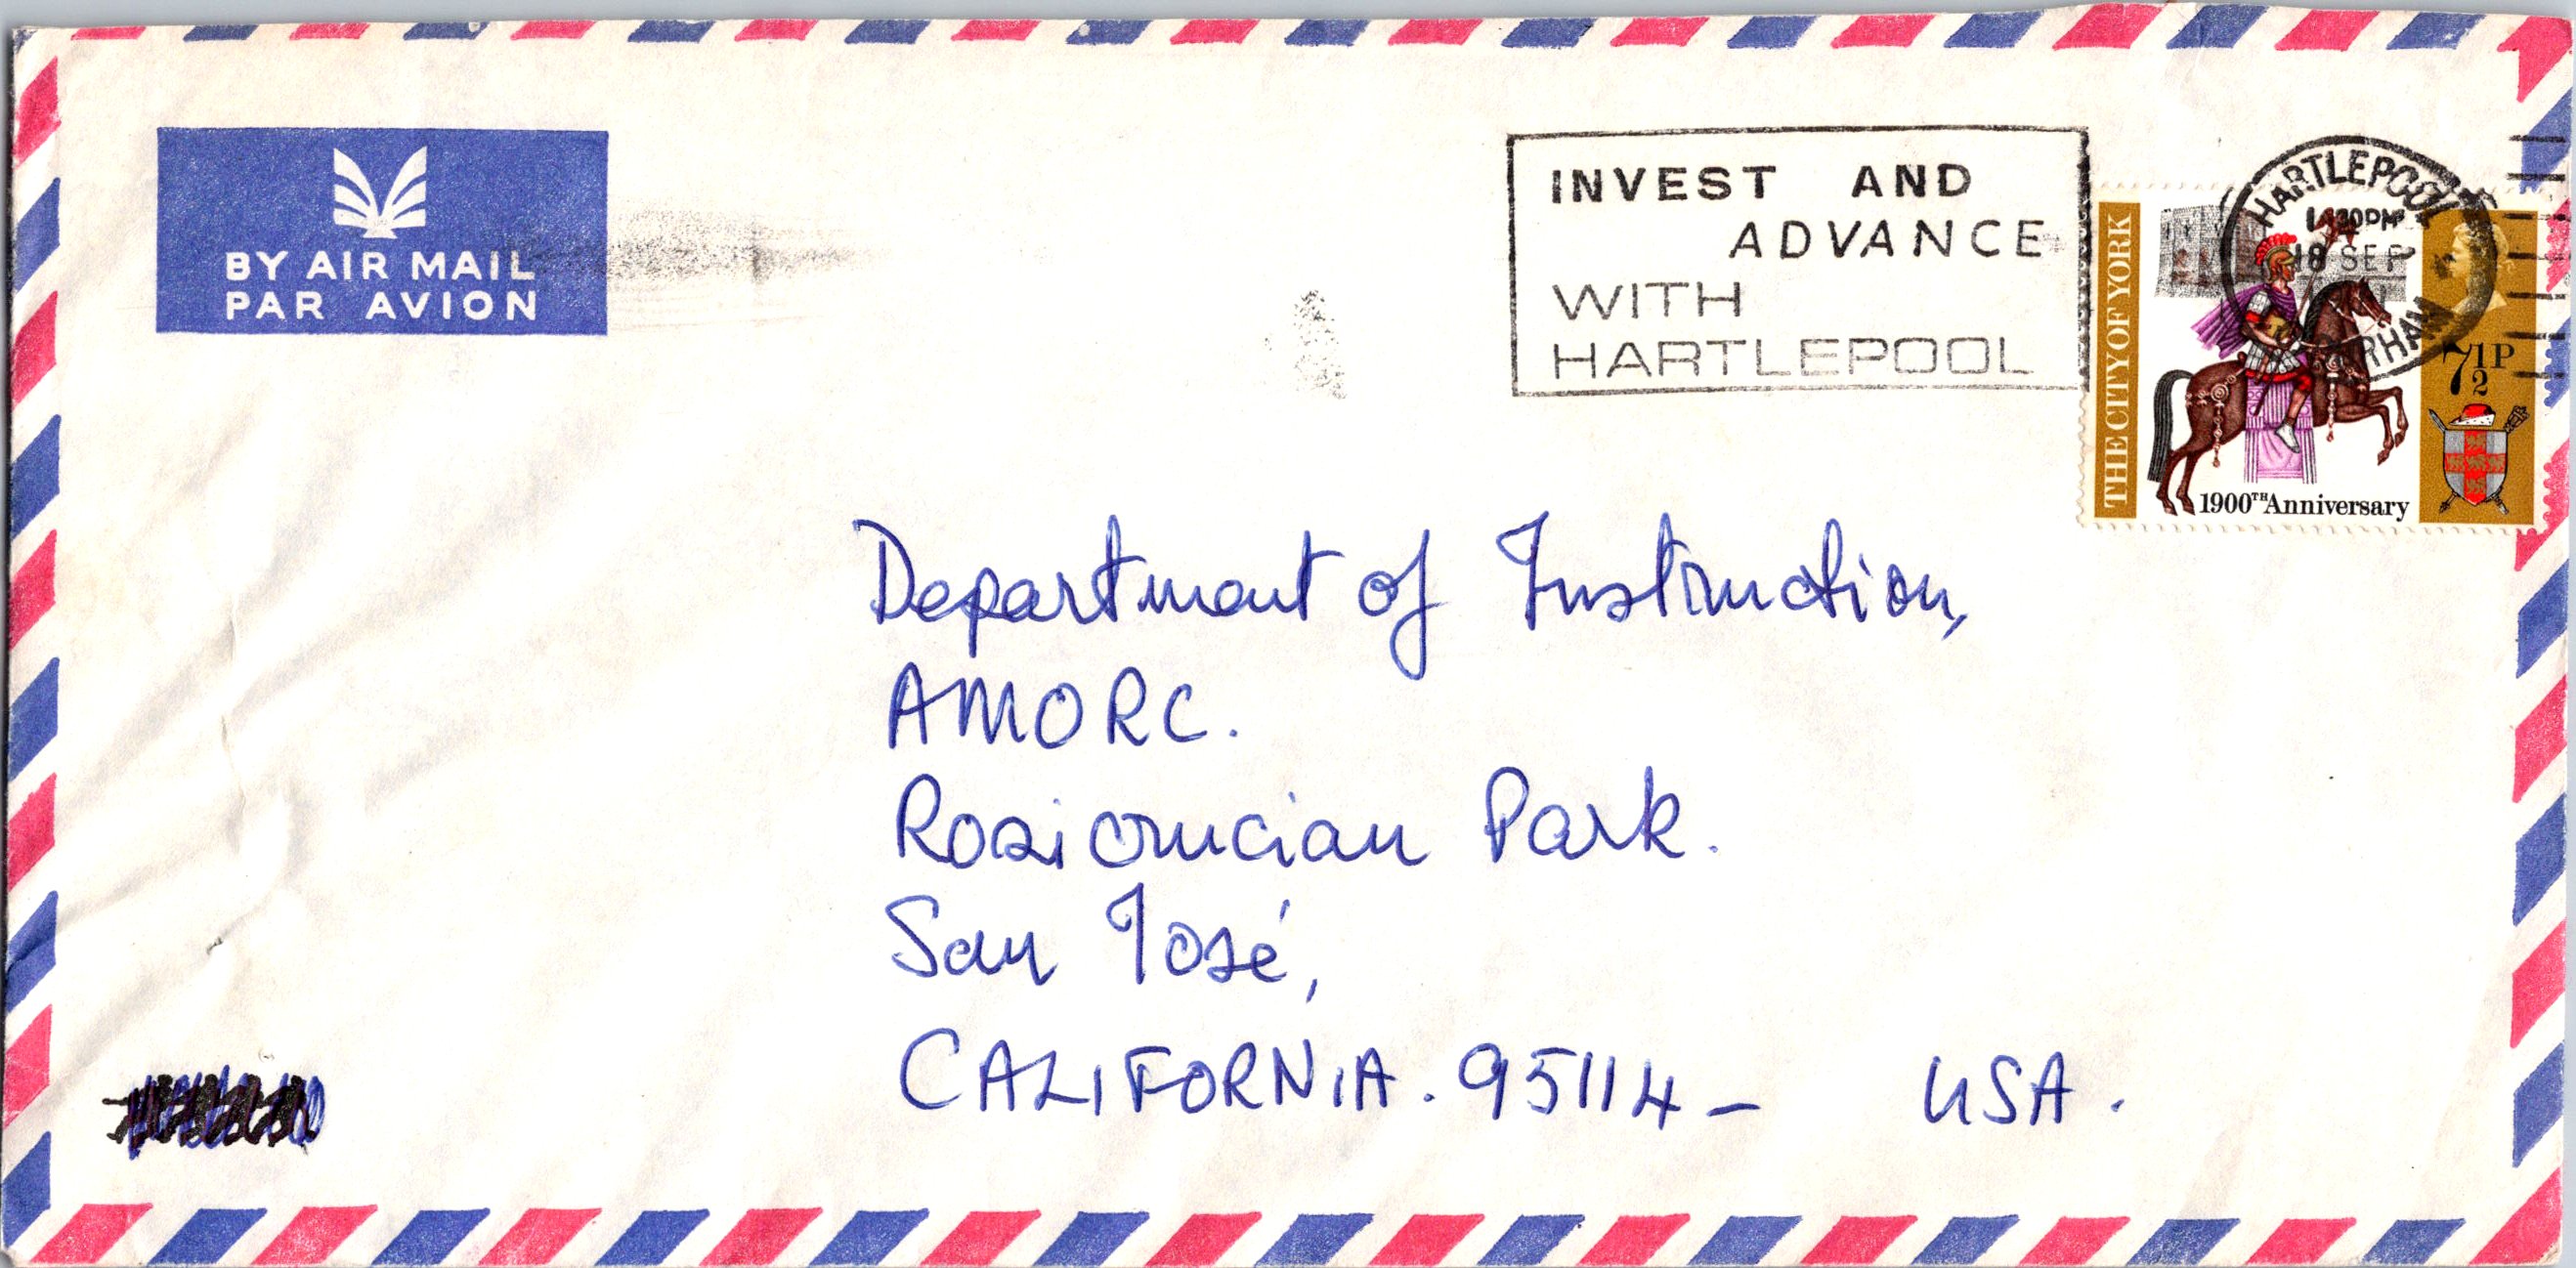 BY AIR MAIL
PAR AVION
INVEST AND
ADVANCE
WITH
HARTLEPOOL
HARTLEPOOL
18 SEP
THE CITY OF YORK
7½P
1900TH Anniversary
Department of Instruction,
AMORC.
Rosicrucian Park.
San José,
CALIFORNIA. 95114 - USA.